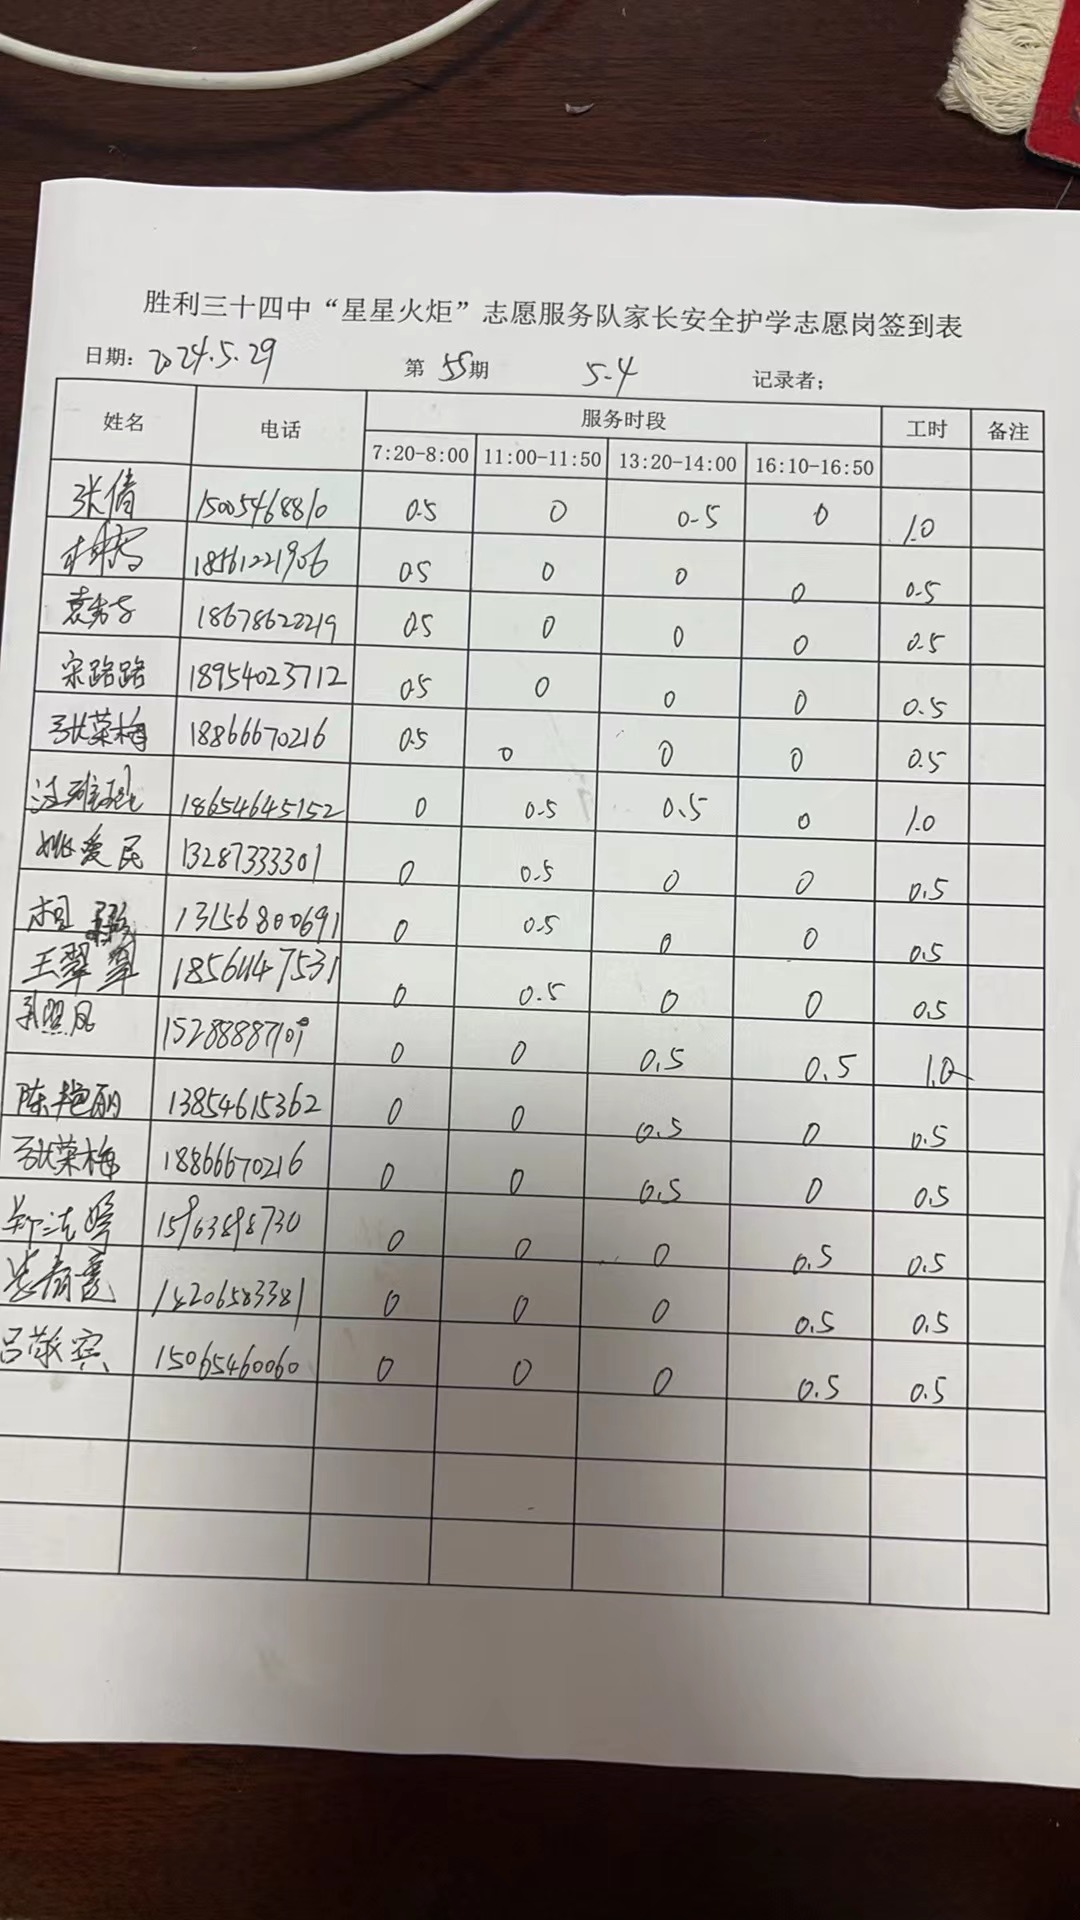 胜利三十四中“星星火炬”志愿服务队家长安全护学志愿岗签到表
日期: 2024.5.29 第 55 期 5-4 记录者:
姓名 电话 服务时段 工时 备注
7:20-8:00 11:00-11:50 13:20-14:00 16:10-16:50
张倩 15005468810 0.5 0 0.5 0 1.0
18561221906 0.5 0 0 0 0.5
18678622219 0.5 0 0 0 0.5
宋路路 18954023712 0.5 0 0 0 0.5
张荣梅 18866670216 0.5 0 0 0 0.5
18654645152 0 0.5 0.5 0 1.0
姚爱民 13287333301 0 0.5 0 0 0.5
13156800691 0 0.5 0 0 0.5
王翠 0 0.5 0 0 0.5
0 0 0.5 0.5 1.0
陈艳丽 13854615362 0 0 0.5 0 0.5
张荣梅 18866670216 0 0 0.5 0 0.5
郑洁婷 15963898730 0 0 0 0.5 0.5
0 0 0 0.5 0.5
吕敬宾 15065460060 0 0 0 0.5 0.5